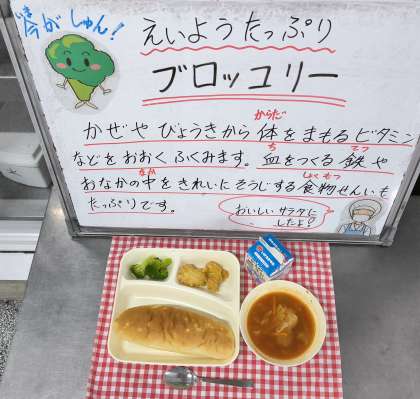 いま
今が しゅん!
えいようたっぷり
ブロッコリー
からだ
かぜや びょうきから 体をまもる ビタミン
ち てつ
などをおおくふくみます。血をつくる 鉄や
なか しょくもつ
おなかの中をきれいにそうじする食物せんいも
たっぷりです。
おいしいサラダに
したよ!